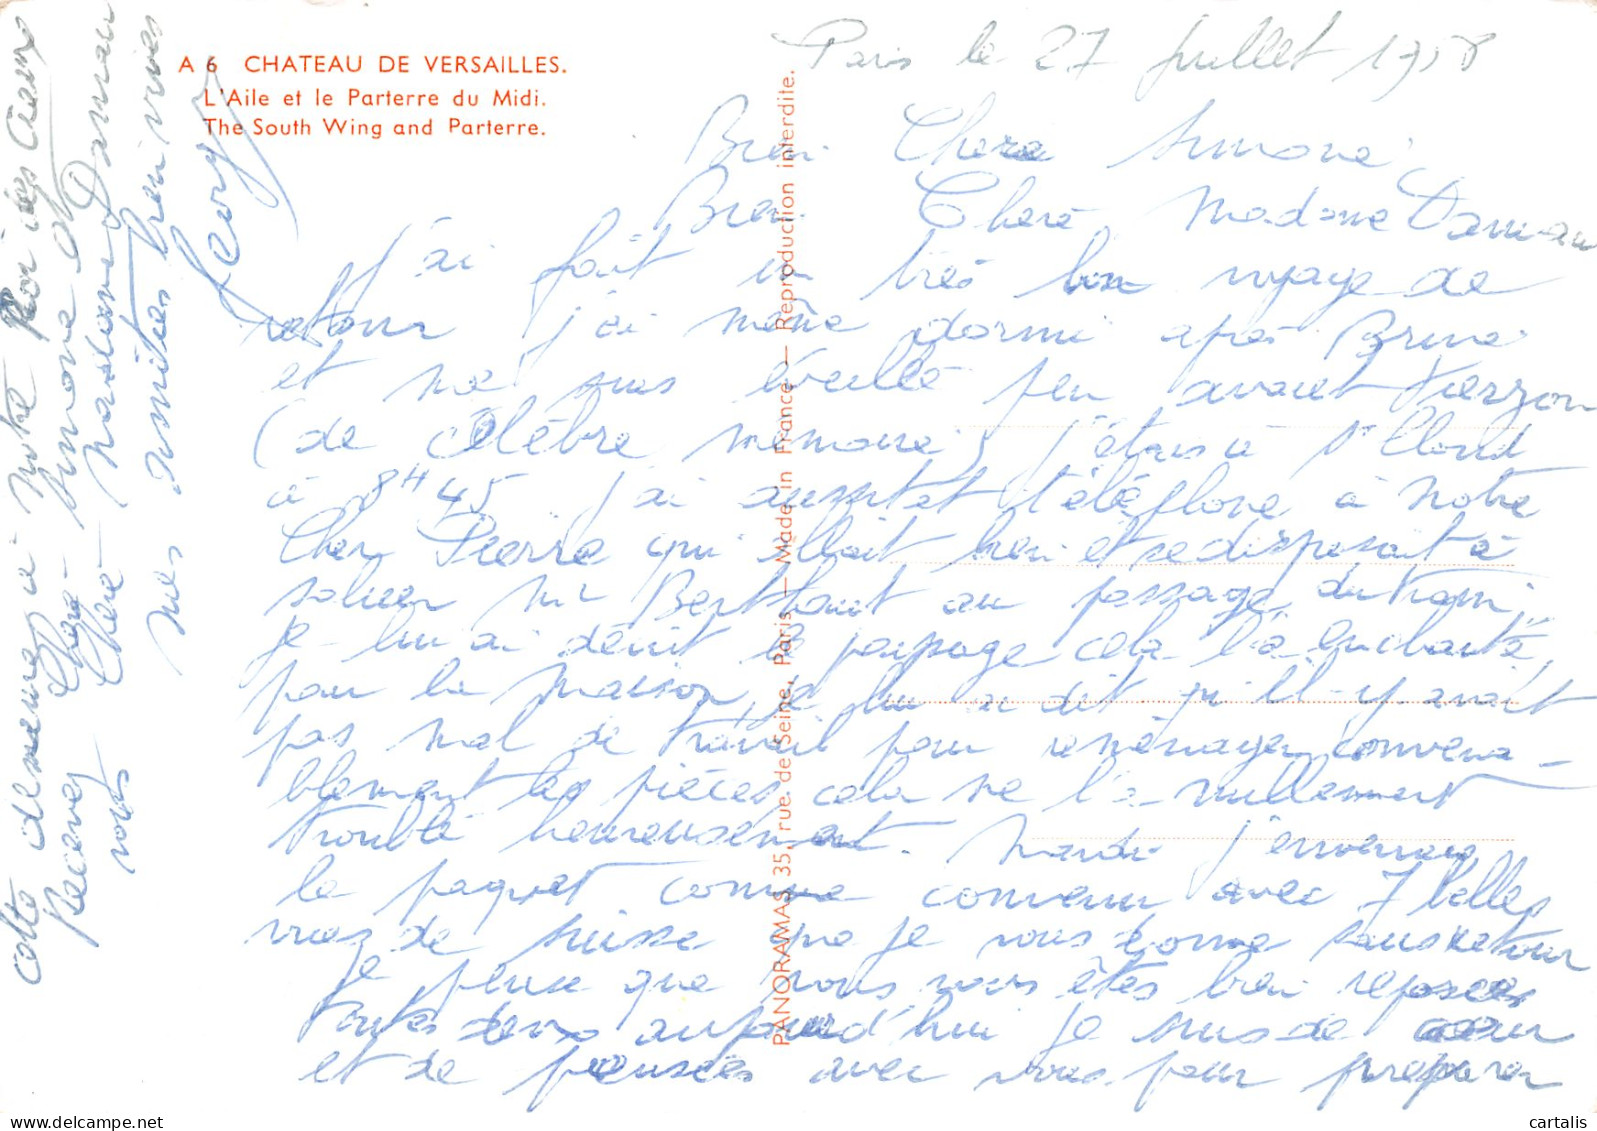 A 6 CHATEAU DE VERSAILLES.
L'Aile et le Parterre du Midi.
The South Wing and Parterre.
PANORAMAS, 35, rue de Seine, Paris — Made in France — Reproduction interdite.
Paris le 27 Juillet 1958
Bien Chere Simone
Bien Chere Madame Damman
J'ai fait un très bon voyage de
retour j'ai même dormi après Brive
et me suis éveillé peu avant Vierzon
(de célèbre mémoire) j'étais à St Cloud
à 8H45 j'ai aussitôt téléphoné à notre
Cher Pierre qui allait bien et se disposait à
saluer Mr Berthout au passage du train,
je lui ai décrit le paysage cela l'a enchanté,
pour la maison, je lui ai dit qu'il y avait
pas mal de travail pour réménager convena-
blement les pièces cela ne l'a nullement
troublé heureusement. Mardi j'enverrai
le paquet comme convenu avec 7 belles
vues de Suisse que je vous donne sans retour
Je pense que vous vous êtes bien reposées
toutes deux aujourd'hui je suis de cœur
et de pensées avec vous pour préparer
cette
à notre Roi des
Recevez Chère Simone et
Chère Madame Damman
mes amitiés bien vives